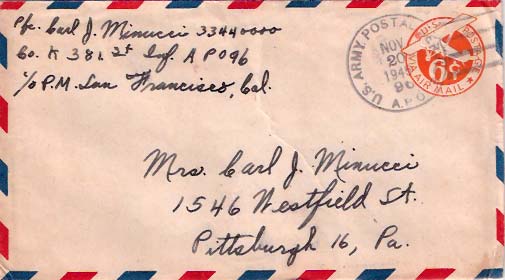 Pfc. Carl J. Minucci 33440000
Co. K 381st Inf. A P O 96
c/o P.M. San Francisco, Cal.
U.S. ARMY POSTAL
NOV
20
1945
96
A.P.O.
U.S. POSTAGE
6¢
VIA AIR MAIL
Mrs. Carl J. Minucci
1546 Westfield St.
Pittsburgh 16, Pa.